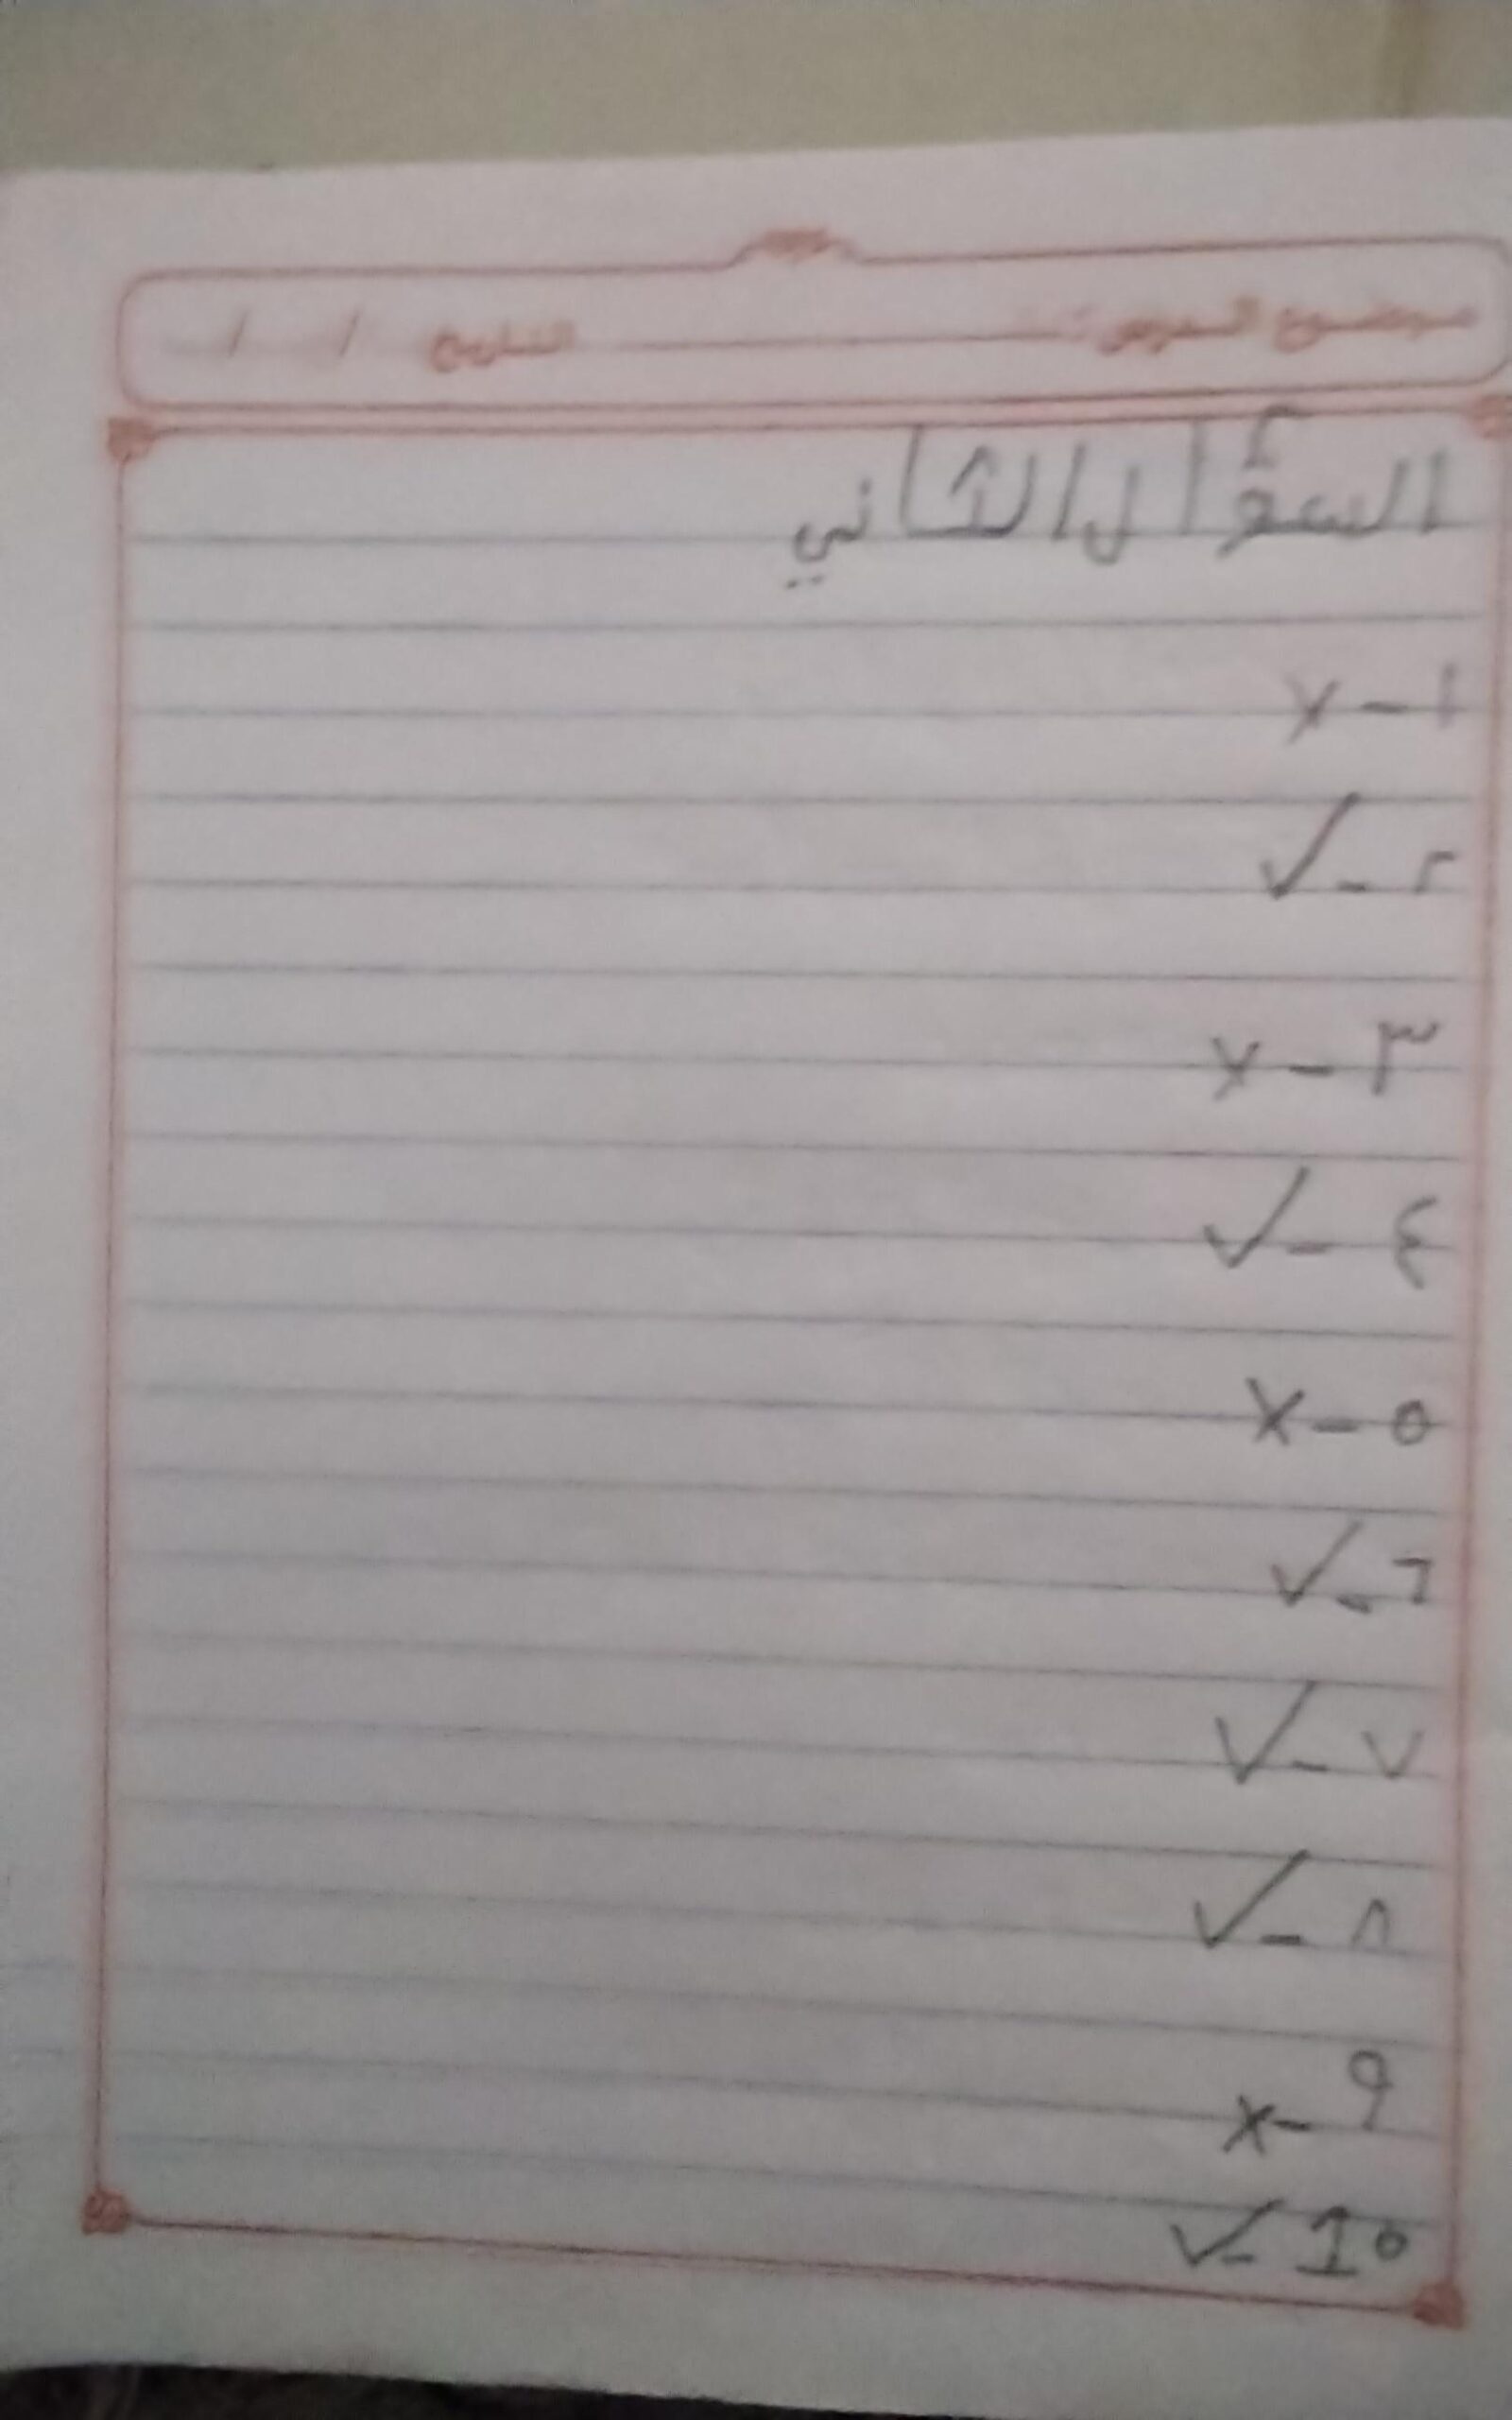 موضوع الدرس: التاريخ / /
السؤال الثاني
١ - x
٢ - ✓
٣ - x
٤ - ✓
٥ - x
٦ - ✓
٧ - ✓
٨ - ✓
٩ - x
10 - ✓